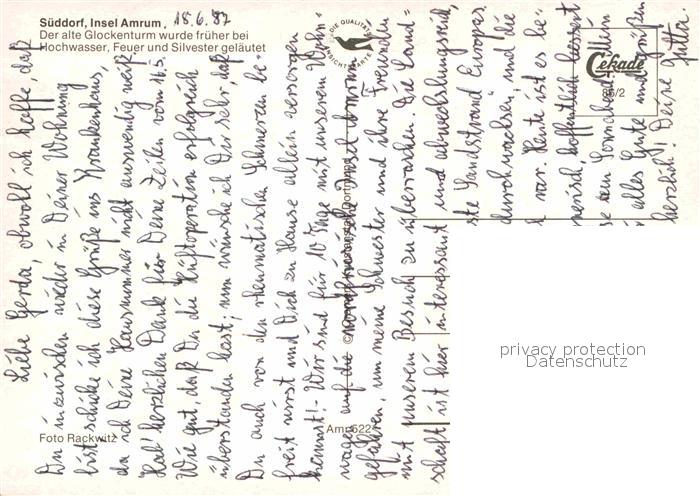 Süddorf, Insel Amrum, 18.6.87
Der alte Glockenturm wurde früher bei
Hochwasser, Feuer und Silvester geläutet
DIE QUALITÄTS
ANSICHTSKARTE
Cekade
86/2
Liebe Gerda, obwohl ich hoffe, daß
Du inzwischen wieder in Deiner Wohnung
bist, schicke ich diese Grüße ins Krankenhaus,
da ich Deine Hausnummer nicht auswendig weiß
Hab' herzlichen Dank für Deine Zeilen vom 16.5.
Wie gut, daß Du die Hüftoperation erfolgreich
überstanden hast; nun wünsche ich Dir sehr, daß
Du auch von den rheumatischen Schmerzen be-
freit wirst und Dich zu Hause allein versorgen
kannst! - Wir sind für 10 Tage mit unserem Wohn-
wagen auf die nordfriesische Insel Amrum
gefahren, um meine Schwester und ihre Freundin
mit unserem Besuch zu überraschen. Die Land-
schaft ist hier interessant und abwechslungsreich,
ste Sandstrand Europas
durchwachsen, und die
war. Heute ist es be-
hoffentlich bessert
zum Sonnabend. Nun
alles Gute und Grüßen
herzlich! Deine Jutta.
Foto Rackwitz
Amr 622
privacy protection
Datenschutz